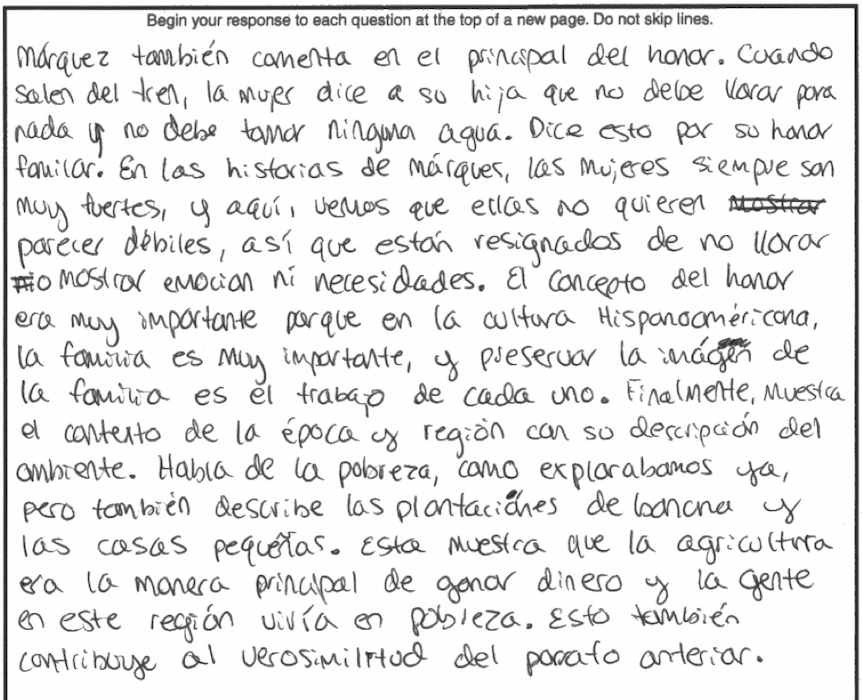 Begin your response to each question at the top of a new page. Do not skip lines.
Márquez también comenta en el principal del honor. Cuando
salen del tren, la mujer dice a su hija que no debe llorar para
nada y no debe tomar ninguna agua. Dice esto por su honor
familiar. En las historias de Márques, las mujeres siempre son
muy fuertes, y aquí, vemos que ellas no quieren mostrar
parecer débiles, así que están resignados de no llorar
o mostrar emocion ni necesidades. El concepto del honor
era muy importante porque en la cultura Hispanoaméricana,
la familia es muy importante, y preservar la imágen de
la familia es el trabajo de cada uno. Finalmente, muestra
el contexto de la época y región con su descripción del
ambiente. Habla de la pobreza, como explorabamos ya,
pero también describe las plantaciónes de banana y
las casas pequeñas. Esta muestra que la agricultura
era la manera principal de ganar dinero y la gente
en este región vivía en pobreza. Esto también
contribuye al verosimilitud del parrafo anterior.